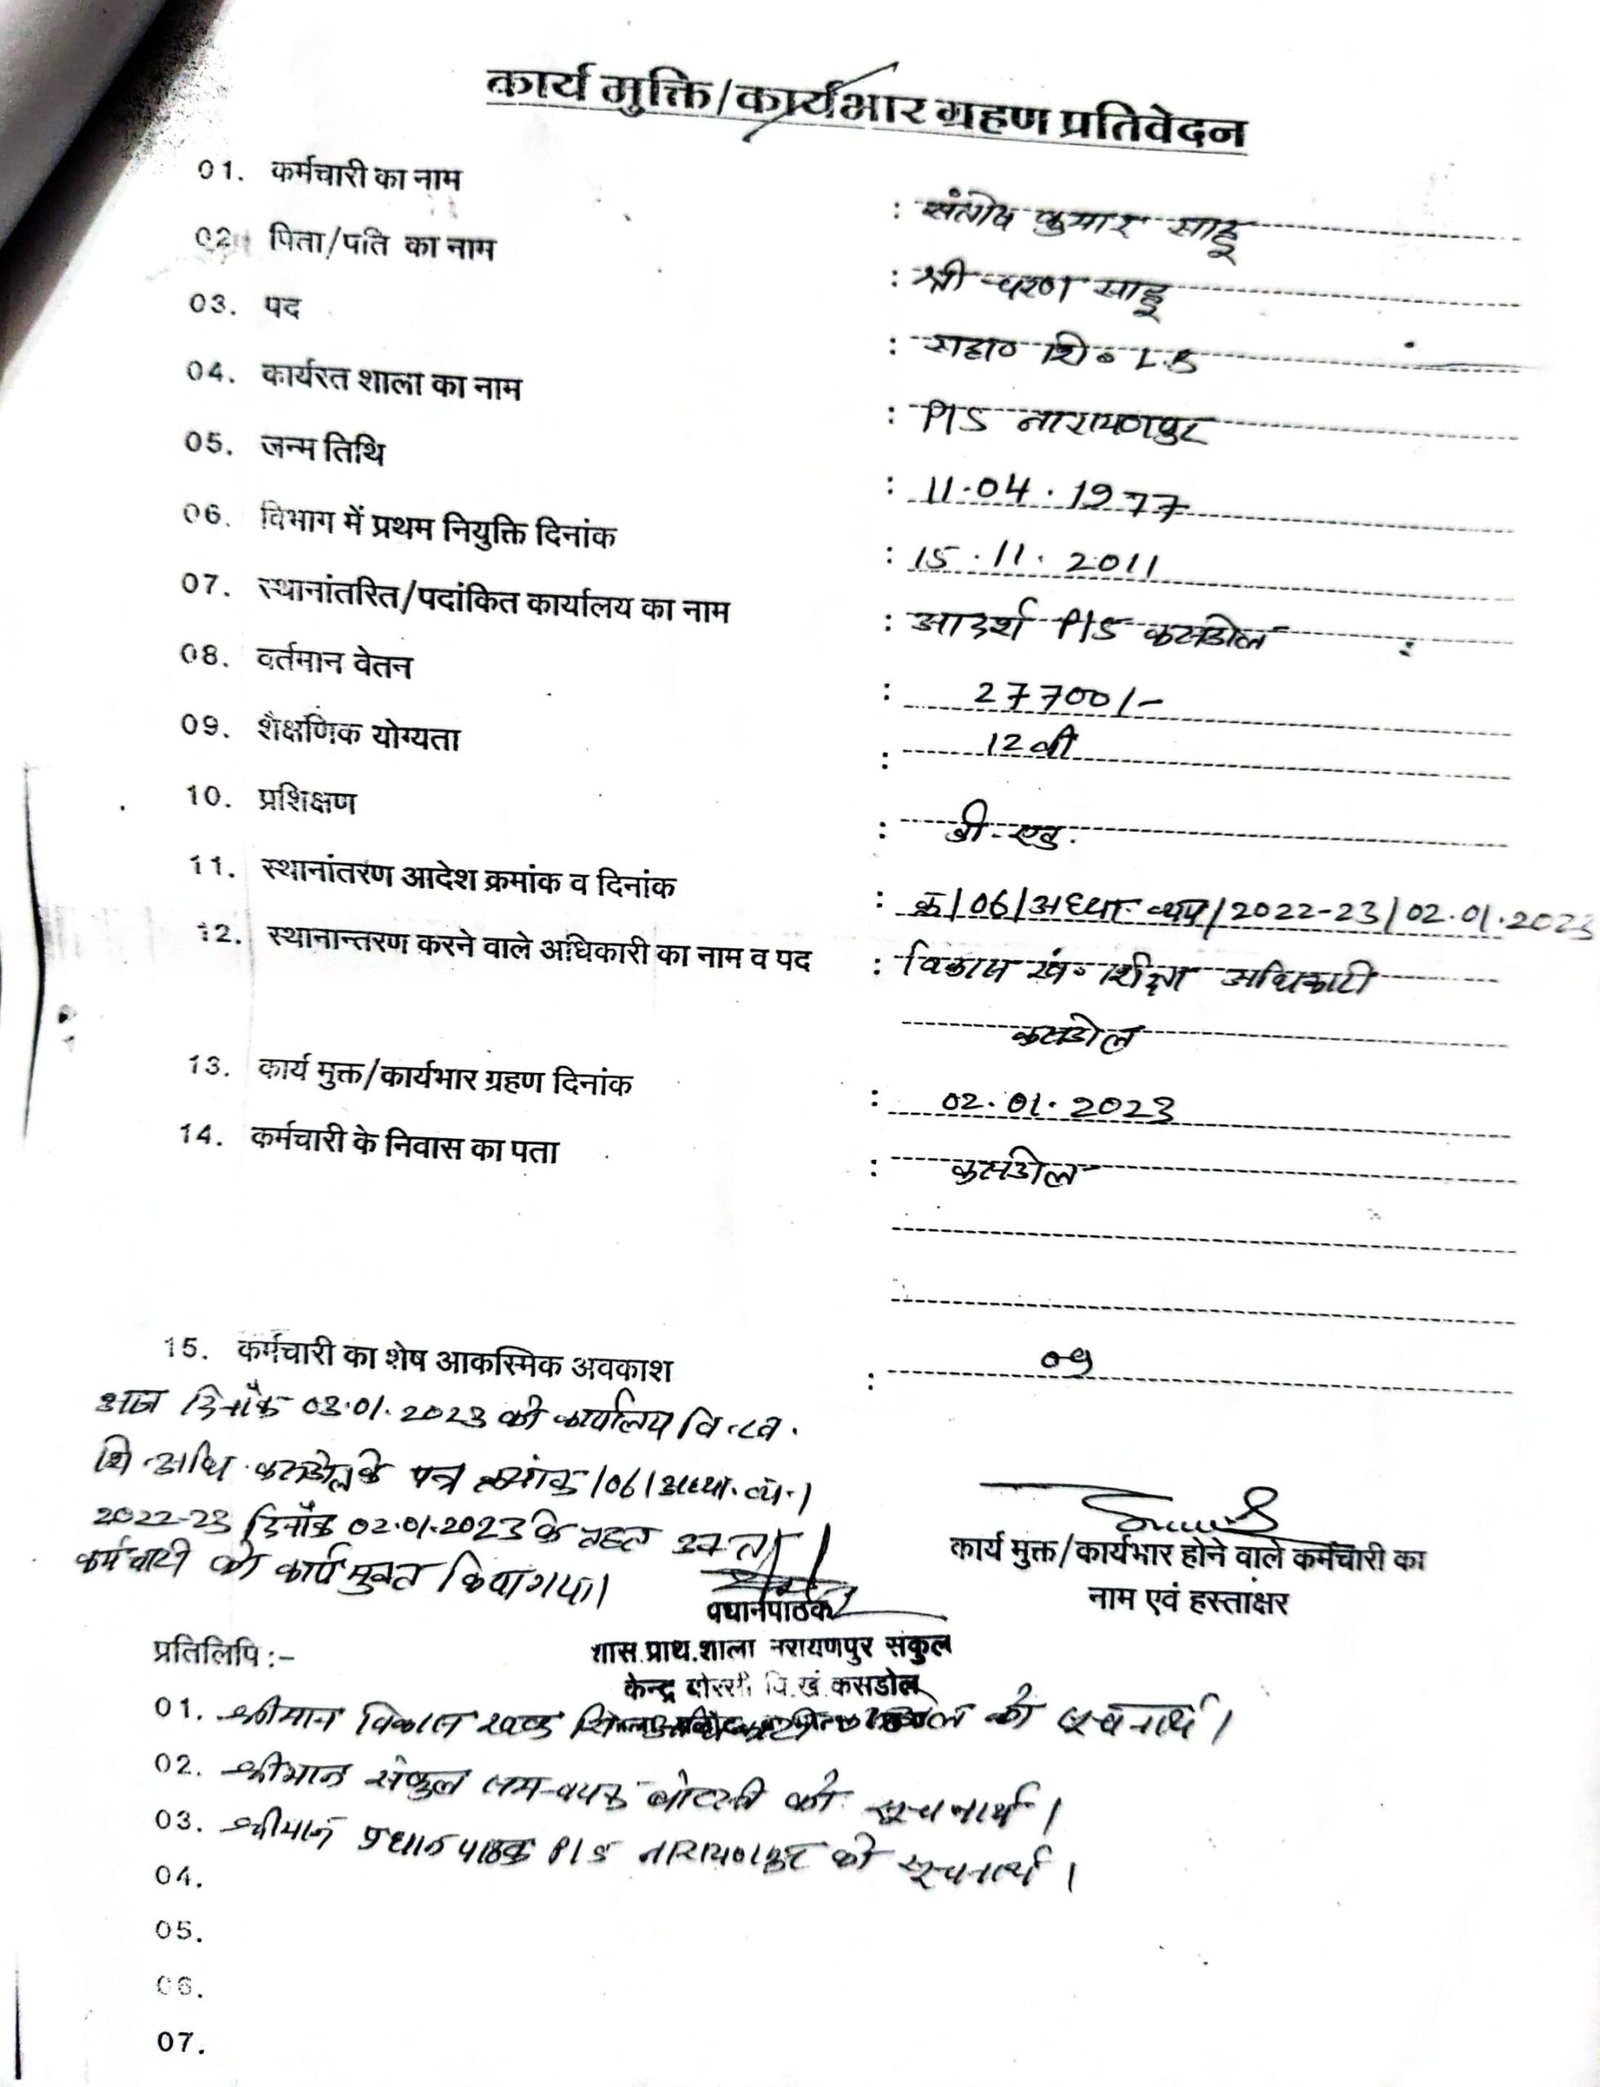 कार्य मुक्ति/कार्यभार ग्रहण प्रतिवेदन
01. कर्मचारी का नाम : संतोष कुमार साहू
02. पिता/पति का नाम : श्री चरण साहू
03. पद : सहा० शि० L.B
04. कार्यरत शाला का नाम : P/S नारायणपुर
05. जन्म तिथि : 11.04.1977
06. विभाग में प्रथम नियुक्ति दिनांक : 15.11.2011
07. स्थानांतरित/पदांकित कार्यालय का नाम : आदर्श P/S कसडोल
08. वर्तमान वेतन : 27700/-
09. शैक्षणिक योग्यता : 12वी
10. प्रशिक्षण : डी.एड.
11. स्थानांतरण आदेश क्रमांक व दिनांक : क्र/06/अध्या.व्यव/2022-23/02.01.2023
12. स्थानान्तरण करने वाले अधिकारी का नाम व पद : विकास खं० शिक्षा अधिकारी
कसडोल
13. कार्य मुक्त/कार्यभार ग्रहण दिनांक : 02.01.2023
14. कर्मचारी के निवास का पता : कसडोल
15. कर्मचारी का शेष आकस्मिक अवकाश : 09
आज दिनाँक 03.01.2023 को कार्यालय वि.ख.
शि.अधि.कसडोल के पत्र क्रमांक/06/अध्या.व्य./
2022-23 दिनाँक 02.01.2023 के तहत उक्त
कर्मचारी को कार्य मुक्त किया गया।
कार्य मुक्त/कार्यभार होने वाले कर्मचारी का
नाम एवं हस्ताक्षर
प्रधानपाठक
शास.प्राथ.शाला नरायणपुर संकुल
केन्द्र बोरसी वि.खं.कसडोल
प्रतिलिपि :-
01. श्रीमान विकास खण्ड को सूचनार्थ।
02. श्रीमान संकुल समन्वयक बोरसी को सूचनार्थ।
03. श्रीमान प्रधान पाठक P/S नारायणपुर को सूचनार्थ।
04.
05.
06.
07.